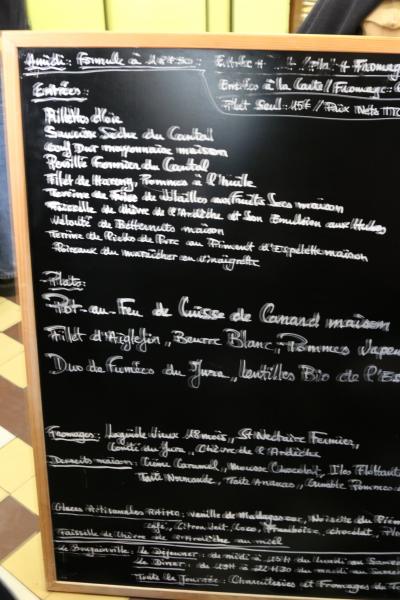 A midi: Formule à
Entrées à la Carte // Fromage
Plat Seul: 15€ // Prix Nets TTC
Entrées:
Rillettes d'oie
Saucisse Sèche du Cantal
Oeuf Dur mayonnaise maison
Pounti Fermier du Cantal
Filet de Hareng, Pommes à l'Huile
Terrine de Foies de Volailles aux Fruits Secs maison
Faisselle de chèvre de l'Ardèche et Son Emulsion aux Herbes
Velouté de Butternuts maison
Terrine de Pieds de Porc au Piment d'Espelette maison
Poireaux du maraîcher en vinaigrette
Plats:
Pot-au-Feu de Cuisse de Canard maison
Filet d'Aiglefin, Beurre Blanc, Pommes Vapeu
Duo de Fumées du Jura, Lentilles Bio de l'Es
Fromages: Laguiole Vieux 18 mois, St Nectaire Fermier,
Comté du Jura, Chèvre de l'Ardèche
Desserts maison: Crème Caramel, Mousse Chocolat, Iles Flottant
Tarte Normande, Tarte Ananas, Crumble Pommes
Glaces Artisanales: Vanille de Madagascar, Noisette du Piém
café, Citron Vert, Coco, Framboise, chocolat,
Faisselle de Chèvre de l'Ardèche au miel
Le Bougainville: Le Déjeuner: de midi à 15H du lundi au Same
Le Diner: de 19H à 22H30 du mardi au Same
Toute la Journée: Charcuteries et Fromages du Te